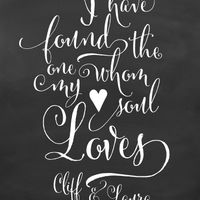 I have
found the
one whom
my soul
Loves
Cliff & Laura